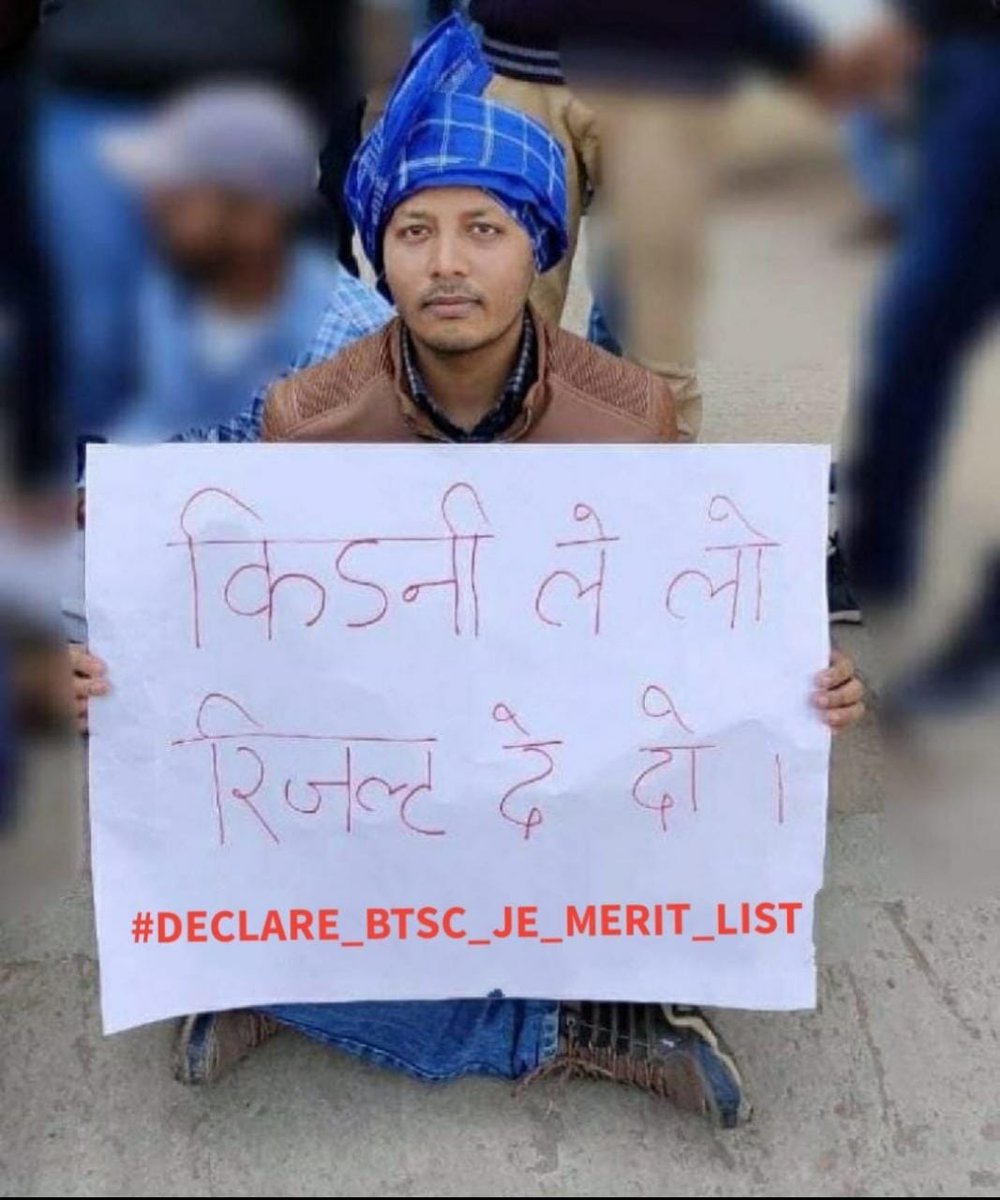 किडनी ले लो
रिजल्ट दे दो ।
#DECLARE_BTSC_JE_MERIT_LIST